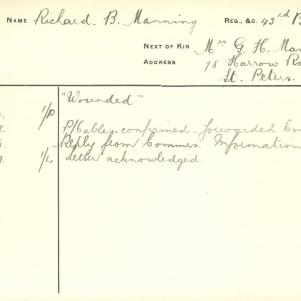 NAME Richard. B. Manning REG., &C. 43rd B
NEXT OF KIN Mrs G. H. Man
ADDRESS 78 Harrow Ro
St. Peters.
"Wounded"
P/Cabley. confirmed. forwarded Co
Reply from Commrs. Information
1/L Letter acknowledged.